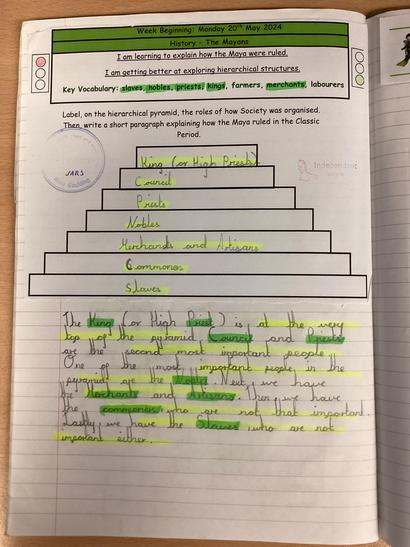 Week Beginning: Monday 20th May 2024
History - The Mayans
I am learning to explain how the Maya were ruled.
I am getting better at exploring hierarchical structures.
Key Vocabulary: slaves, nobles, priests, kings, farmers, merchants, labourers
Label, on the hierarchical pyramid, the roles of how Society was organised.
Then, write a short paragraph explaining how the Maya ruled in the Classic
Period.
JARS
Independent
King (or High Priest)
Council
Priests
Nobles
Merchands and Artisans
Commoners
Slaves
The King (or High Priest) is at the very
top of the pyramid. Council and Priests
are the second most important people.
One of the most important people in the
pyramid are the Nobles. Next, we have
the Merchants and Artisans. Then, we have
the commoners, who are not that important.
Lastly, we have the Slaves, who are not
important either.